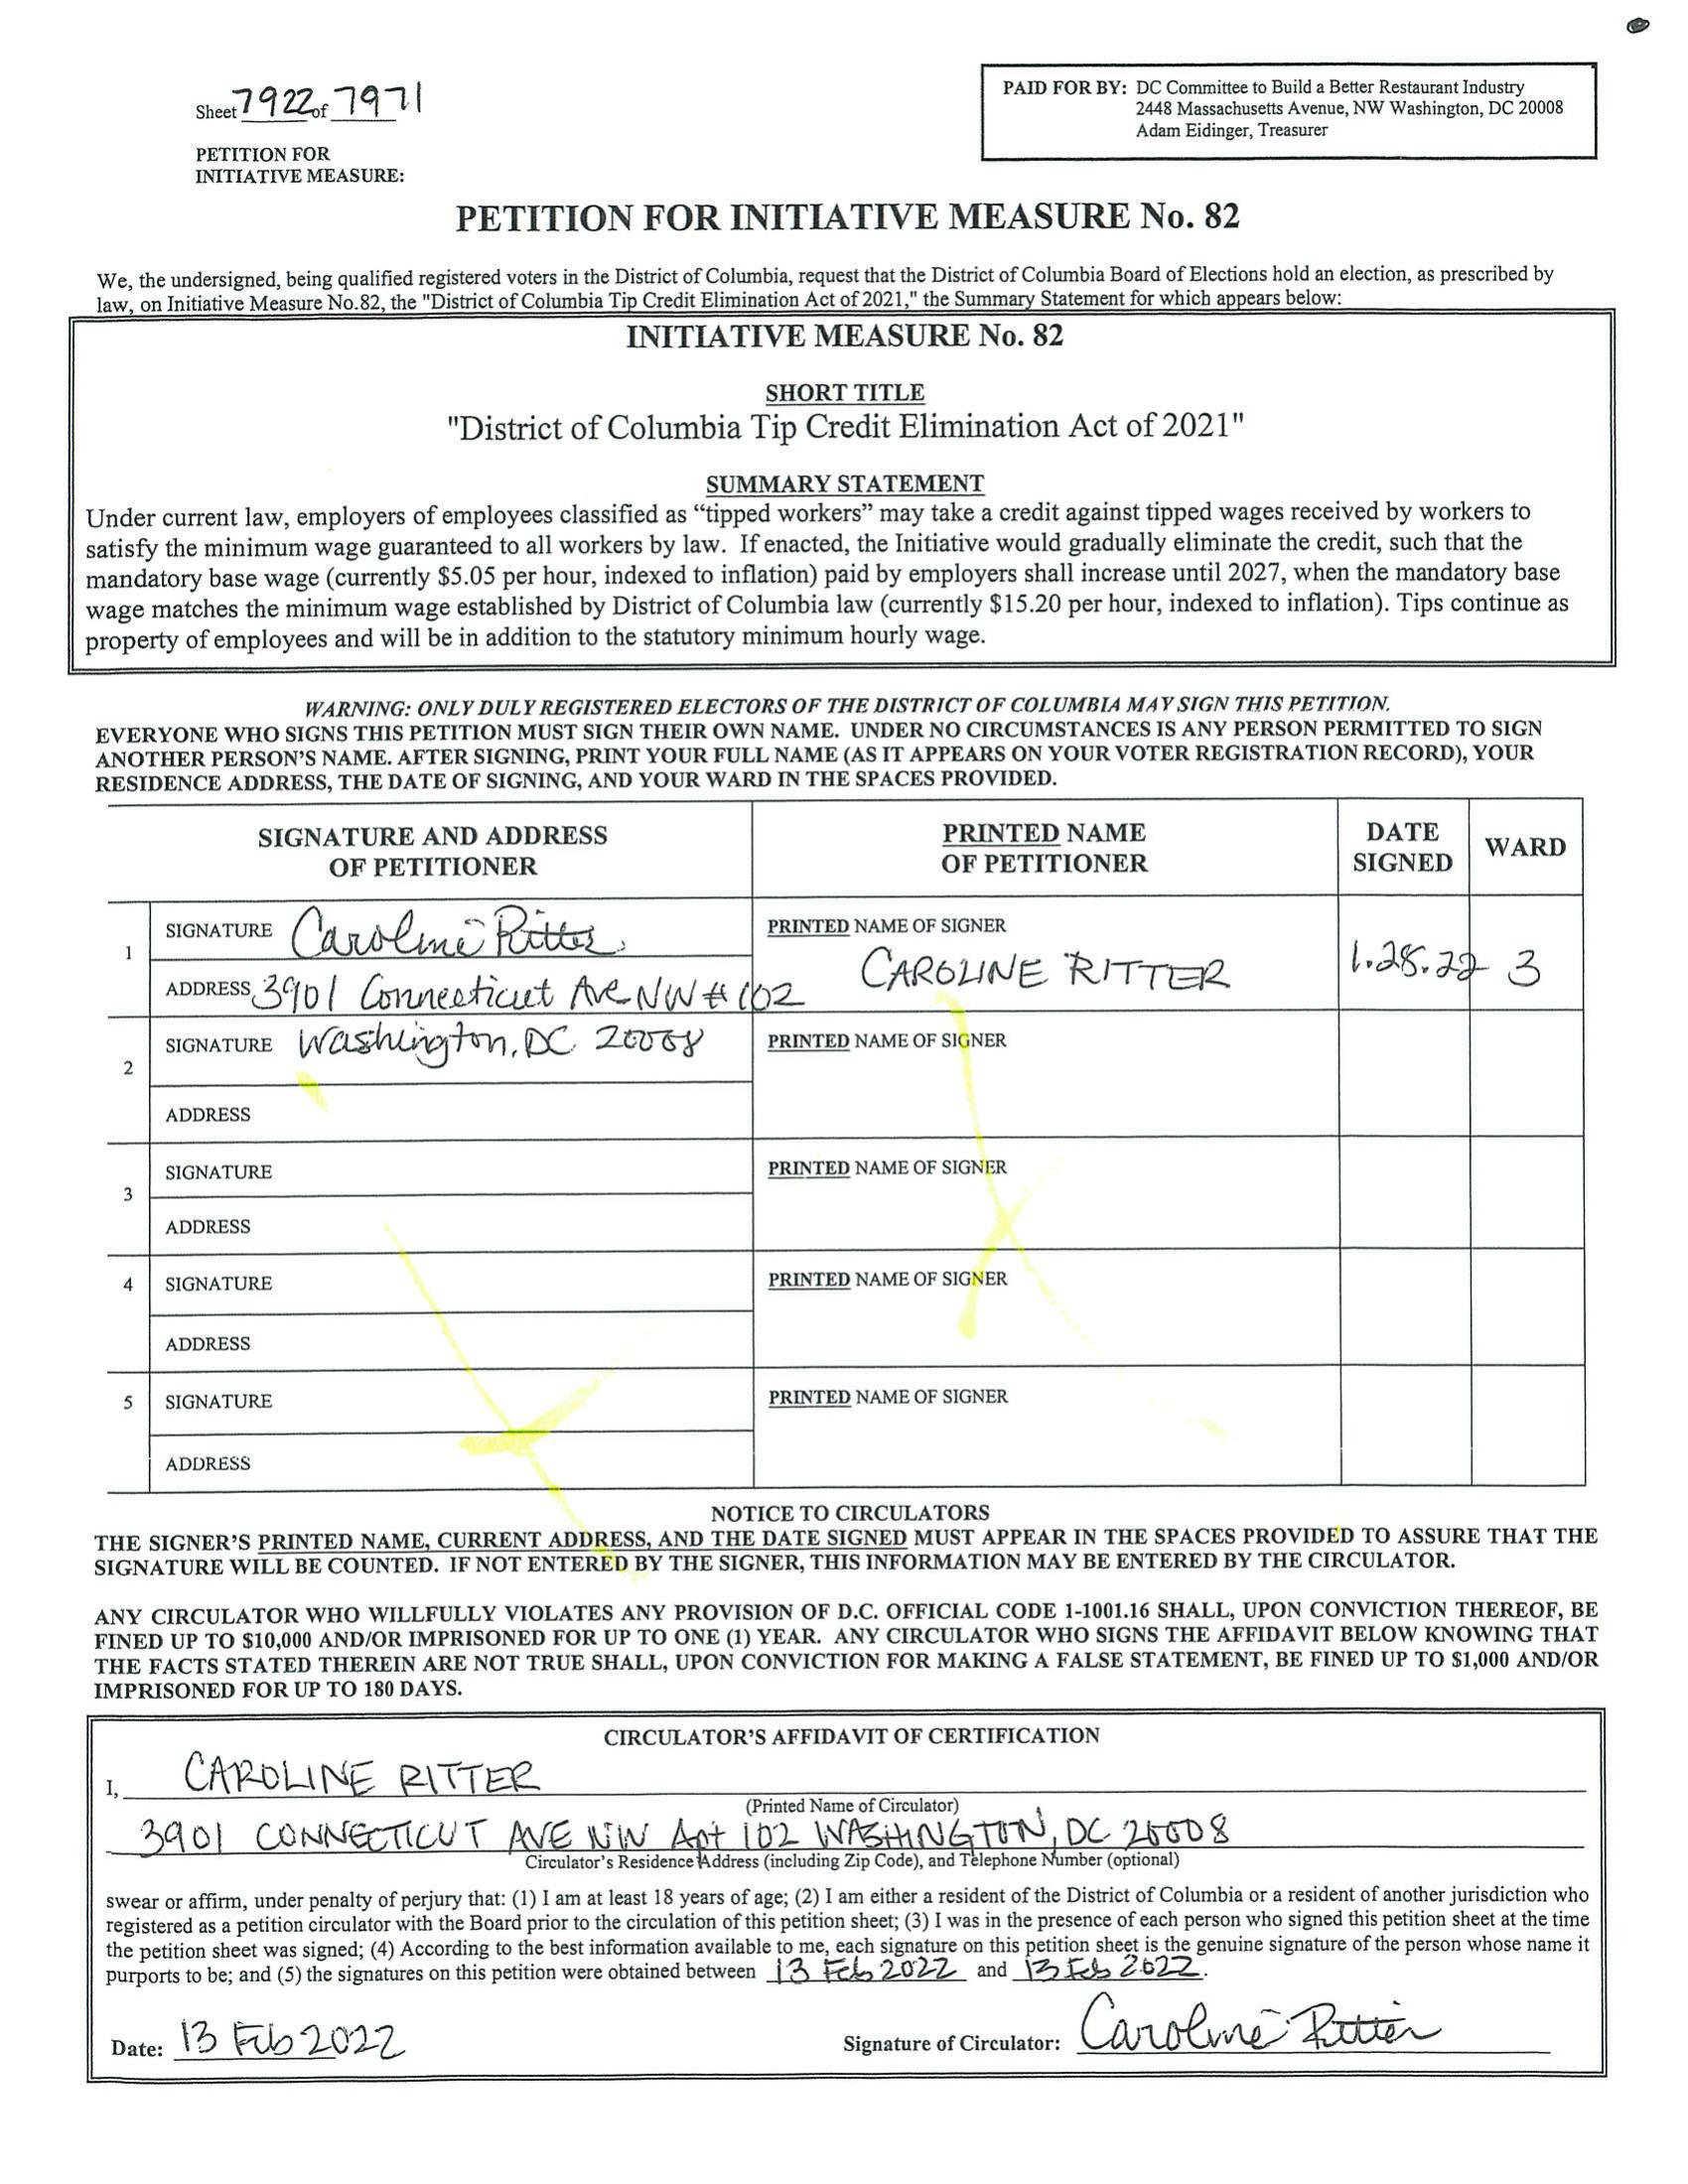 Sheet 7922 of 7971
PETITION FOR
INITIATIVE MEASURE:
PAID FOR BY: DC Committee to Build a Better Restaurant Industry
2448 Massachusetts Avenue, NW Washington, DC 20008
Adam Eidinger, Treasurer
PETITION FOR INITIATIVE MEASURE No. 82
We, the undersigned, being qualified registered voters in the District of Columbia, request that the District of Columbia Board of Elections hold an election, as prescribed by
law, on Initiative Measure No.82, the "District of Columbia Tip Credit Elimination Act of 2021," the Summary Statement for which appears below:
INITIATIVE MEASURE No. 82
SHORT TITLE
"District of Columbia Tip Credit Elimination Act of 2021"
SUMMARY STATEMENT
Under current law, employers of employees classified as “tipped workers” may take a credit against tipped wages received by workers to
satisfy the minimum wage guaranteed to all workers by law. If enacted, the Initiative would gradually eliminate the credit, such that the
mandatory base wage (currently $5.05 per hour, indexed to inflation) paid by employers shall increase until 2027, when the mandatory base
wage matches the minimum wage established by District of Columbia law (currently $15.20 per hour, indexed to inflation). Tips continue as
property of employees and will be in addition to the statutory minimum hourly wage.
WARNING: ONLY DULY REGISTERED ELECTORS OF THE DISTRICT OF COLUMBIA MAY SIGN THIS PETITION.
EVERYONE WHO SIGNS THIS PETITION MUST SIGN THEIR OWN NAME. UNDER NO CIRCUMSTANCES IS ANY PERSON PERMITTED TO SIGN
ANOTHER PERSON'S NAME. AFTER SIGNING, PRINT YOUR FULL NAME (AS IT APPEARS ON YOUR VOTER REGISTRATION RECORD), YOUR
RESIDENCE ADDRESS, THE DATE OF SIGNING, AND YOUR WARD IN THE SPACES PROVIDED.
SIGNATURE AND ADDRESS
OF PETITIONER
PRINTED NAME
OF PETITIONER
DATE
SIGNED
WARD
1
SIGNATURE Caroline Ritter
ADDRESS 3901 Connecticut Ave NW # 102
PRINTED NAME OF SIGNER
CAROLINE RITTER
1.28.22
3
2
SIGNATURE Washington, DC 20008
ADDRESS
PRINTED NAME OF SIGNER
3
SIGNATURE
ADDRESS
PRINTED NAME OF SIGNER
4
SIGNATURE
ADDRESS
PRINTED NAME OF SIGNER
5
SIGNATURE
ADDRESS
PRINTED NAME OF SIGNER
NOTICE TO CIRCULATORS
THE SIGNER'S PRINTED NAME, CURRENT ADDRESS, AND THE DATE SIGNED MUST APPEAR IN THE SPACES PROVIDED TO ASSURE THAT THE
SIGNATURE WILL BE COUNTED. IF NOT ENTERED BY THE SIGNER, THIS INFORMATION MAY BE ENTERED BY THE CIRCULATOR.
ANY CIRCULATOR WHO WILLFULLY VIOLATES ANY PROVISION OF D.C. OFFICIAL CODE 1-1001.16 SHALL, UPON CONVICTION THEREOF, BE
FINED UP TO $10,000 AND/OR IMPRISONED FOR UP TO ONE (1) YEAR. ANY CIRCULATOR WHO SIGNS THE AFFIDAVIT BELOW KNOWING THAT
THE FACTS STATED THEREIN ARE NOT TRUE SHALL, UPON CONVICTION FOR MAKING A FALSE STATEMENT, BE FINED UP TO $1,000 AND/OR
IMPRISONED FOR UP TO 180 DAYS.
CIRCULATOR'S AFFIDAVIT OF CERTIFICATION
I, CAROLINE RITTER
(Printed Name of Circulator)
3901 CONNECTICUT AVE NW Apt 102 WASHINGTON, DC 20008
Circulator's Residence Address (including Zip Code), and Telephone Number (optional)
swear or affirm, under penalty of perjury that: (1) I am at least 18 years of age; (2) I am either a resident of the District of Columbia or a resident of another jurisdiction who
registered as a petition circulator with the Board prior to the circulation of this petition sheet; (3) I was in the presence of each person who signed this petition sheet at the time
the petition sheet was signed; (4) According to the best information available to me, each signature on this petition sheet is the genuine signature of the person whose name it
purports to be; and (5) the signatures on this petition were obtained between 13 Feb 2022 and 13 Feb 2022.
Date: 13 Feb 2022
Signature of Circulator: Caroline Ritter